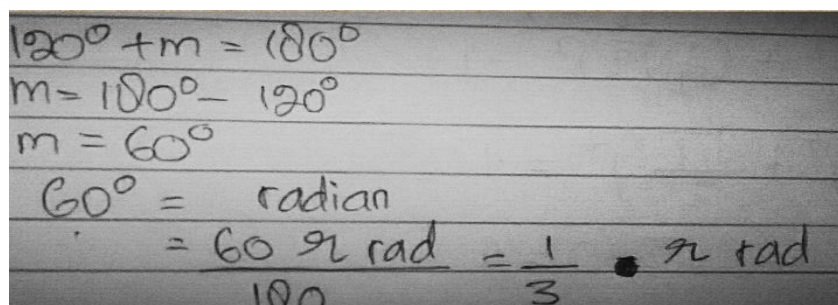 120° + m = 180°
m = 180° - 120°
m = 60°
60° = radian
= 60 π rad / 180 = 1/3 • π rad